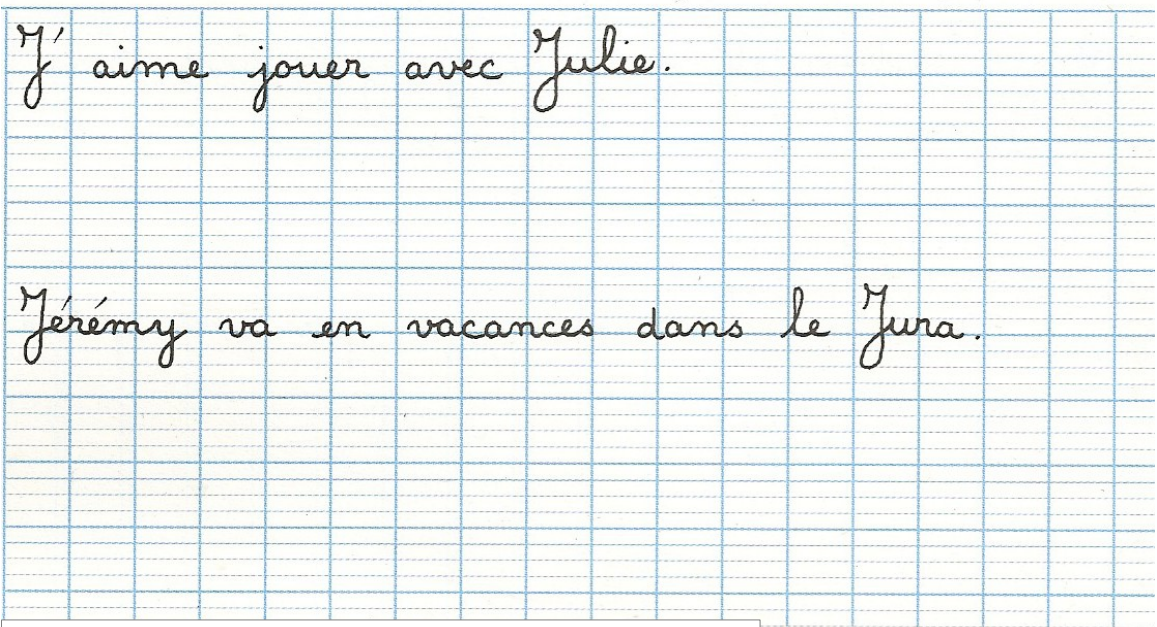 J' aime jouer avec Julie.
Jérémy va en vacances dans le Jura.